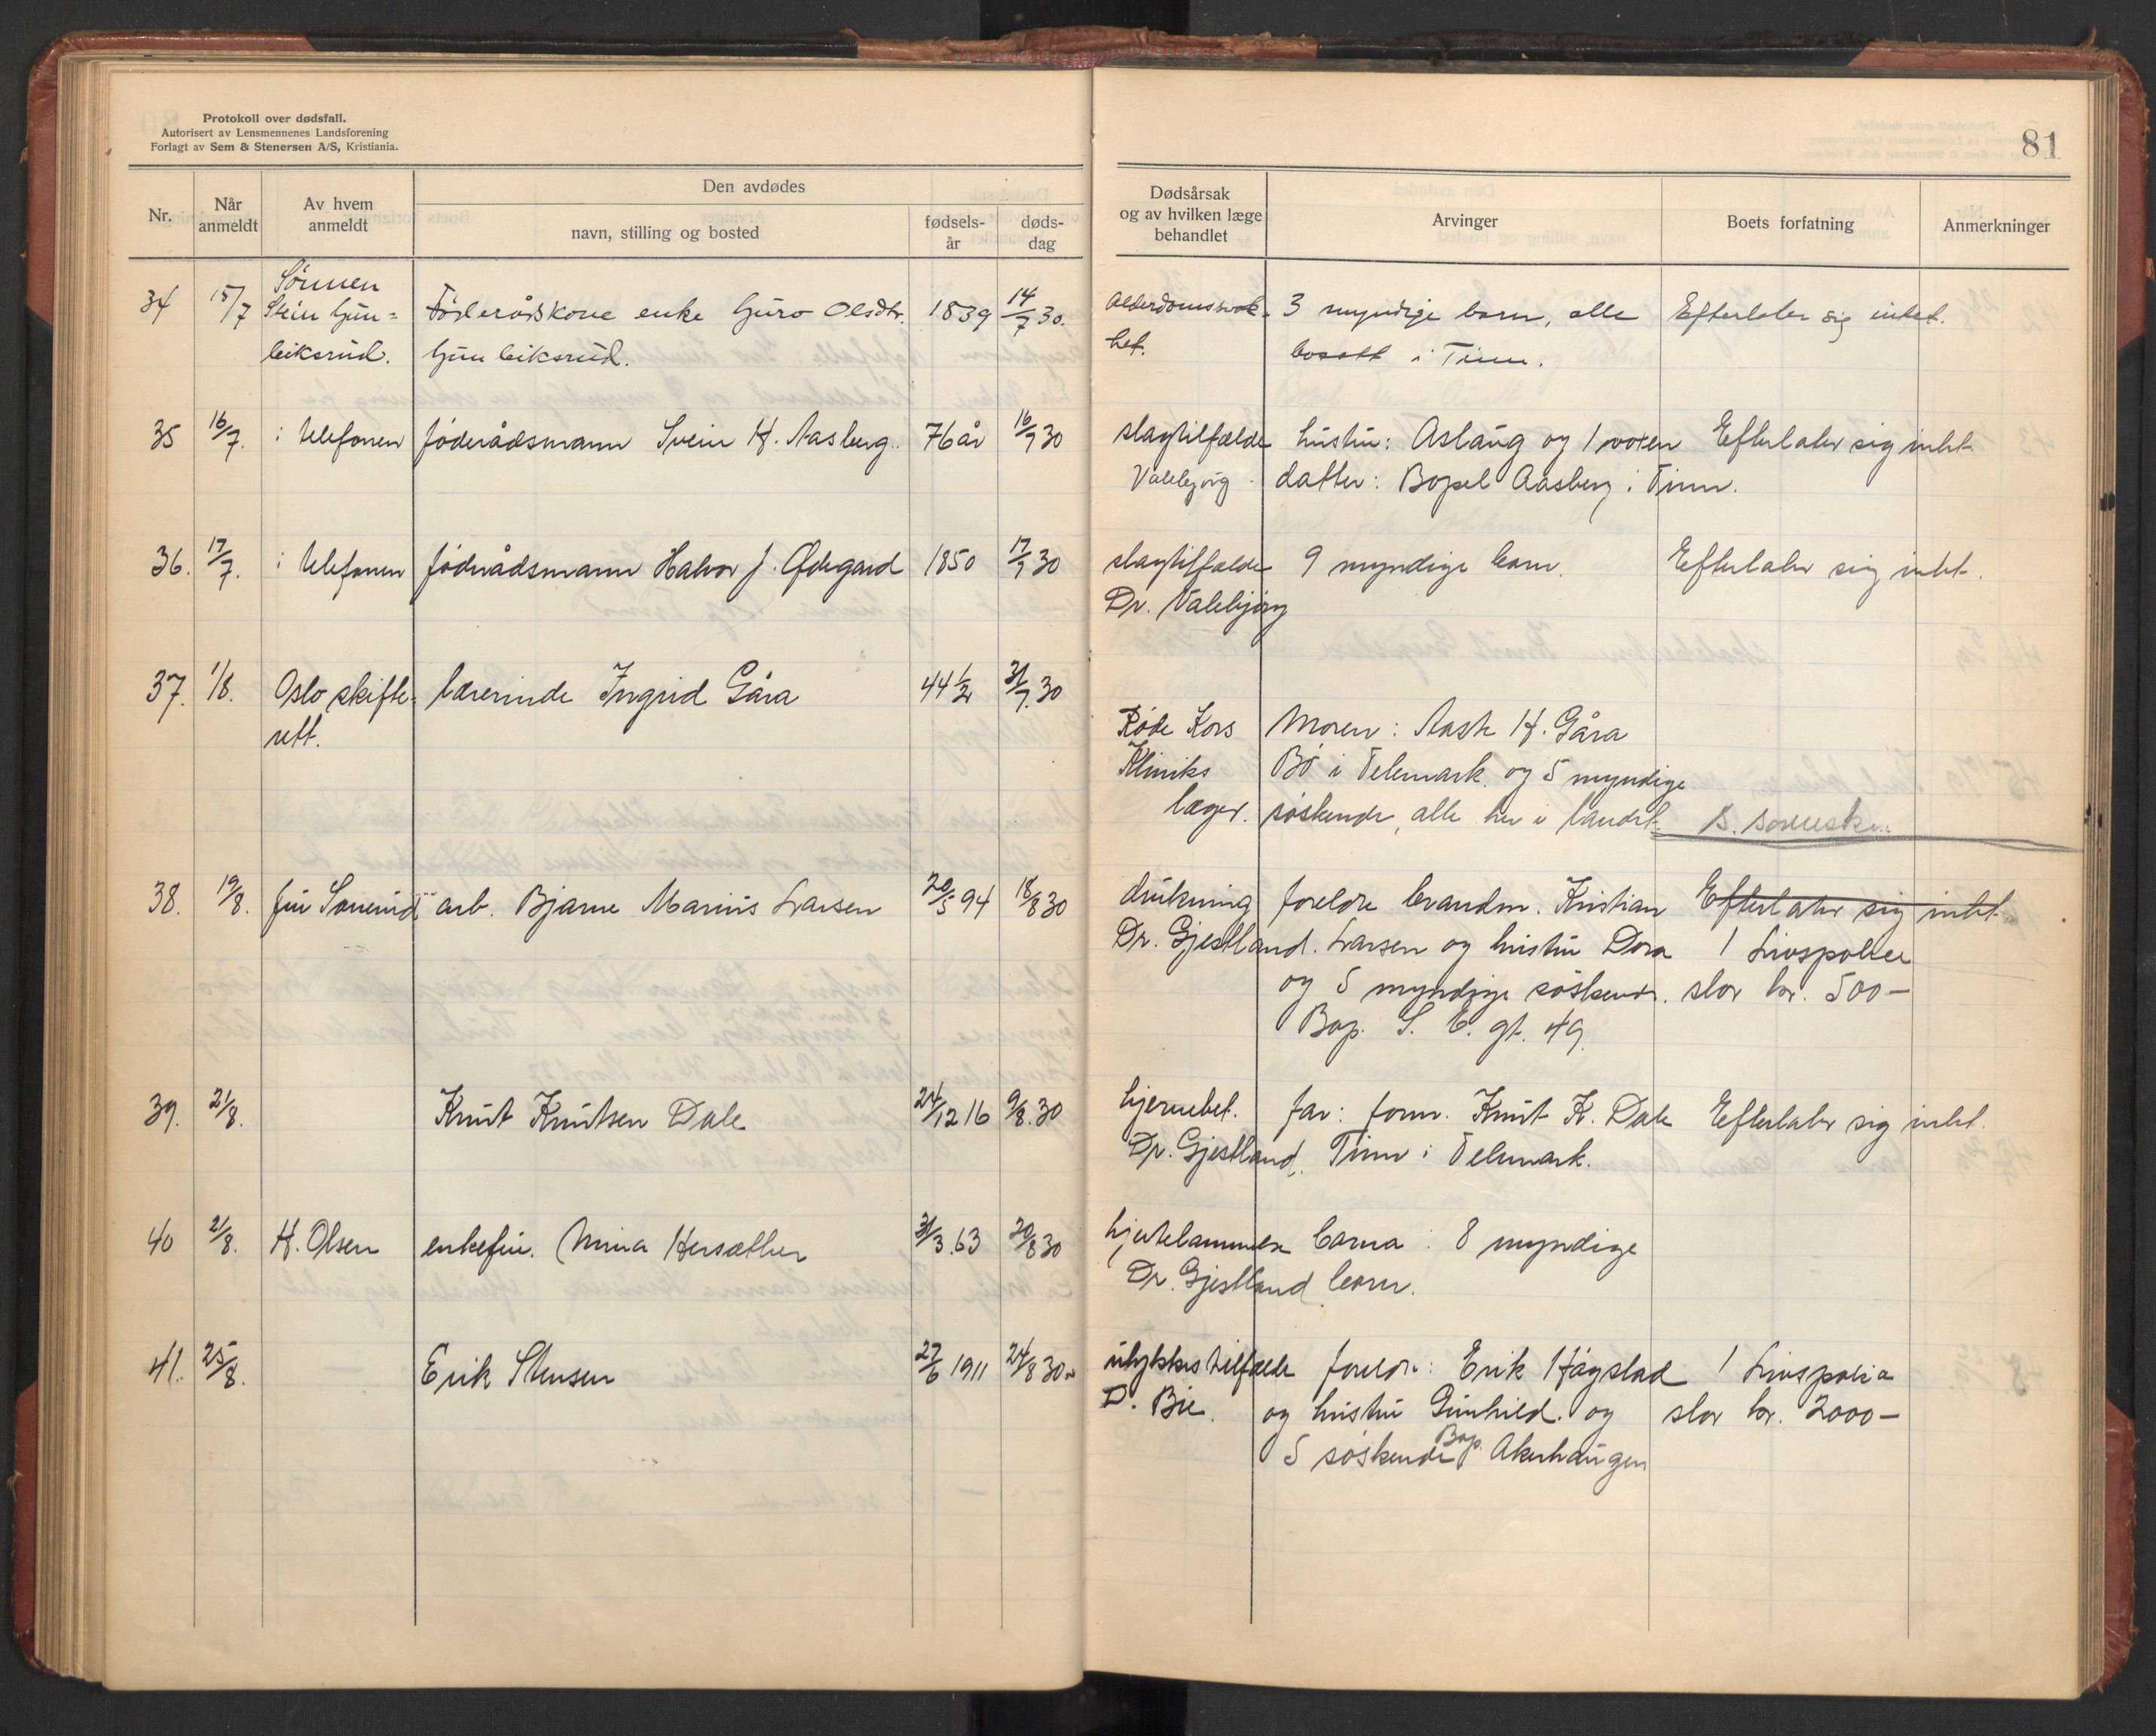 Protokoll over dødsfall.
Autorisert av Lensmennenes Landsforening
Forlagt av Sem & Stenersen A/S, Kristiania.
81
Nr.
Når anmeldt
Av hvem anmeldt
Den avdødes
navn, stilling og bosted
fødsels-år
døds-dag
Dødsårsak og av hvilken læge behandlet
Arvinger
Boets forfatning
Anmerkninger
34 15/7 Sønnen Føderådskone enke Guro Olsdtr. 1839 14/7 30. Alderdomssvak- 3 myndige barn, alle Efterlater sig intet.
Stein Gun= Gunleiksrud. het. bosatt i Tinn.
leiksrud.
35 16/7. i telefonen føderådsmann Svein H. Aasberg. 76 år 16/7 30 slagtilfælde hustru: Aslaug og 1 voxen Efterlater sig intet.
Valebjørg datter: Bopel Aasberg i Tinn.
36. 17/7. i telefonen føderådsmann Halvor J. Ødegard 1850 17/7 30 slagtilfælde 9 myndige barn. Efterlater sig intet.
Dr. Valebjørg
37. 1/8. Oslo skifte- lærerinde Ingrid Gåra 44 1/2 31/7. 30
rett.
Røde Kors Moren: H. Gåra
Kliniks Bø i Telemark og 5 myndige
læger. søskende, alle her i landet.
38. 19/8. fru arb. Bjarne Marius Larsen 20/5 94 18/8 30 drukning foreldre brandm. Kristian Efterlater sig intet.
Dr. Gjestland. Larsen og hustru Dora 1 Livspolice
og 5 myndige søskende. stor kr. 500-
Bop. S. E. gt. 49.
39. 21/8. Knut Knutsen Dale 24/12 16 9/8. 30 hjernebet. far: form. Knut K. Dale Efterlater sig intet.
Dr. Gjestland. Tinn i Telemark.
40 21/8. H. Olsen enkefru. Mina Hersæther 31/3. 63 20/8 30 hjertelammelse barna: 8 myndige
Dr. Gjestland barn.
41. 25/8. Erik Stensen 27/6 1911 24/8 30. ulykkestilfælde foreldr: Erik Hågstad 1 Livspolise
D. Bie. og hustru Gunhild. og stor kr. 2000-
5 søskende Bop. Akerhaugen